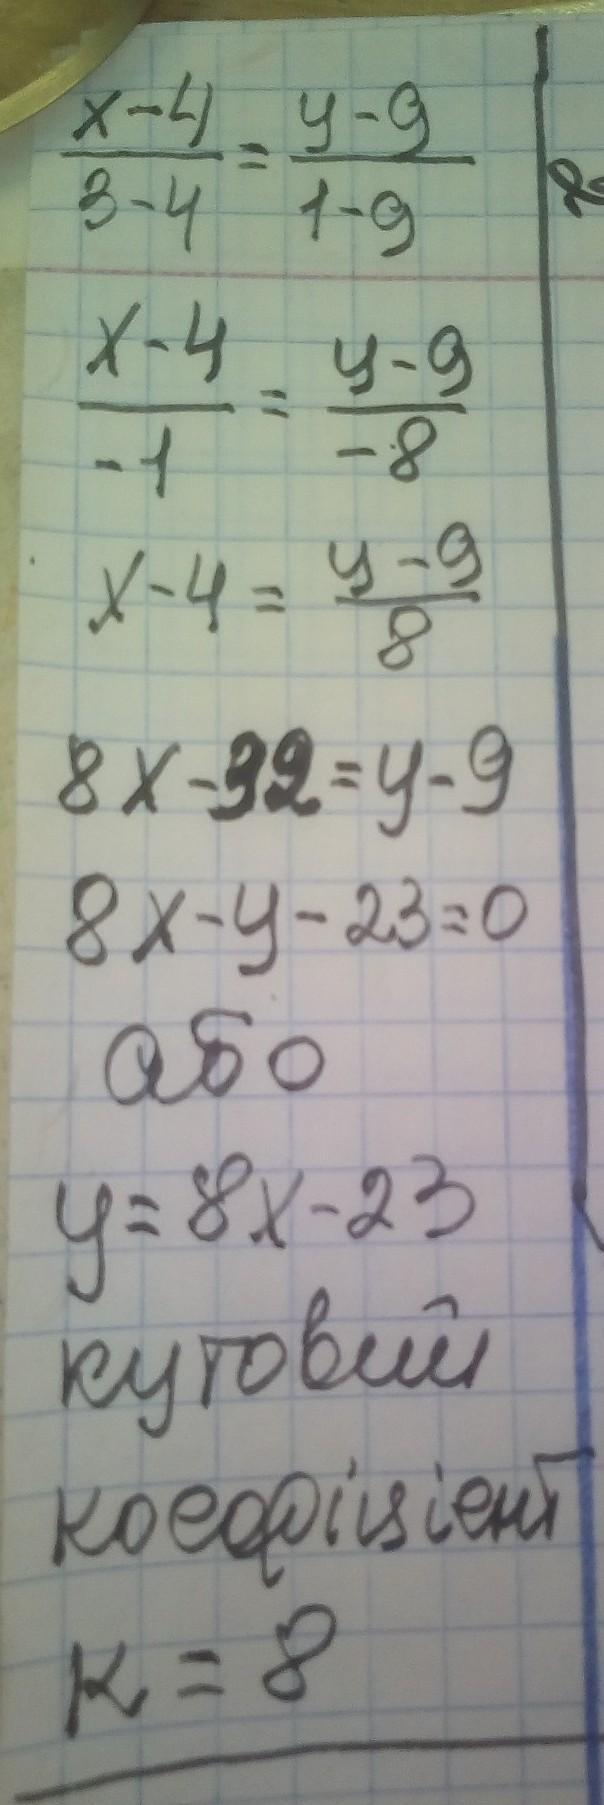 x-4/3-4 = y-9/1-9
x-4/-1 = y-9/-8
x-4 = y-9/8
8x-32=y-9
8x-y-23=0
або
y=8x-23
кутовий
коефіцієнт
к=8